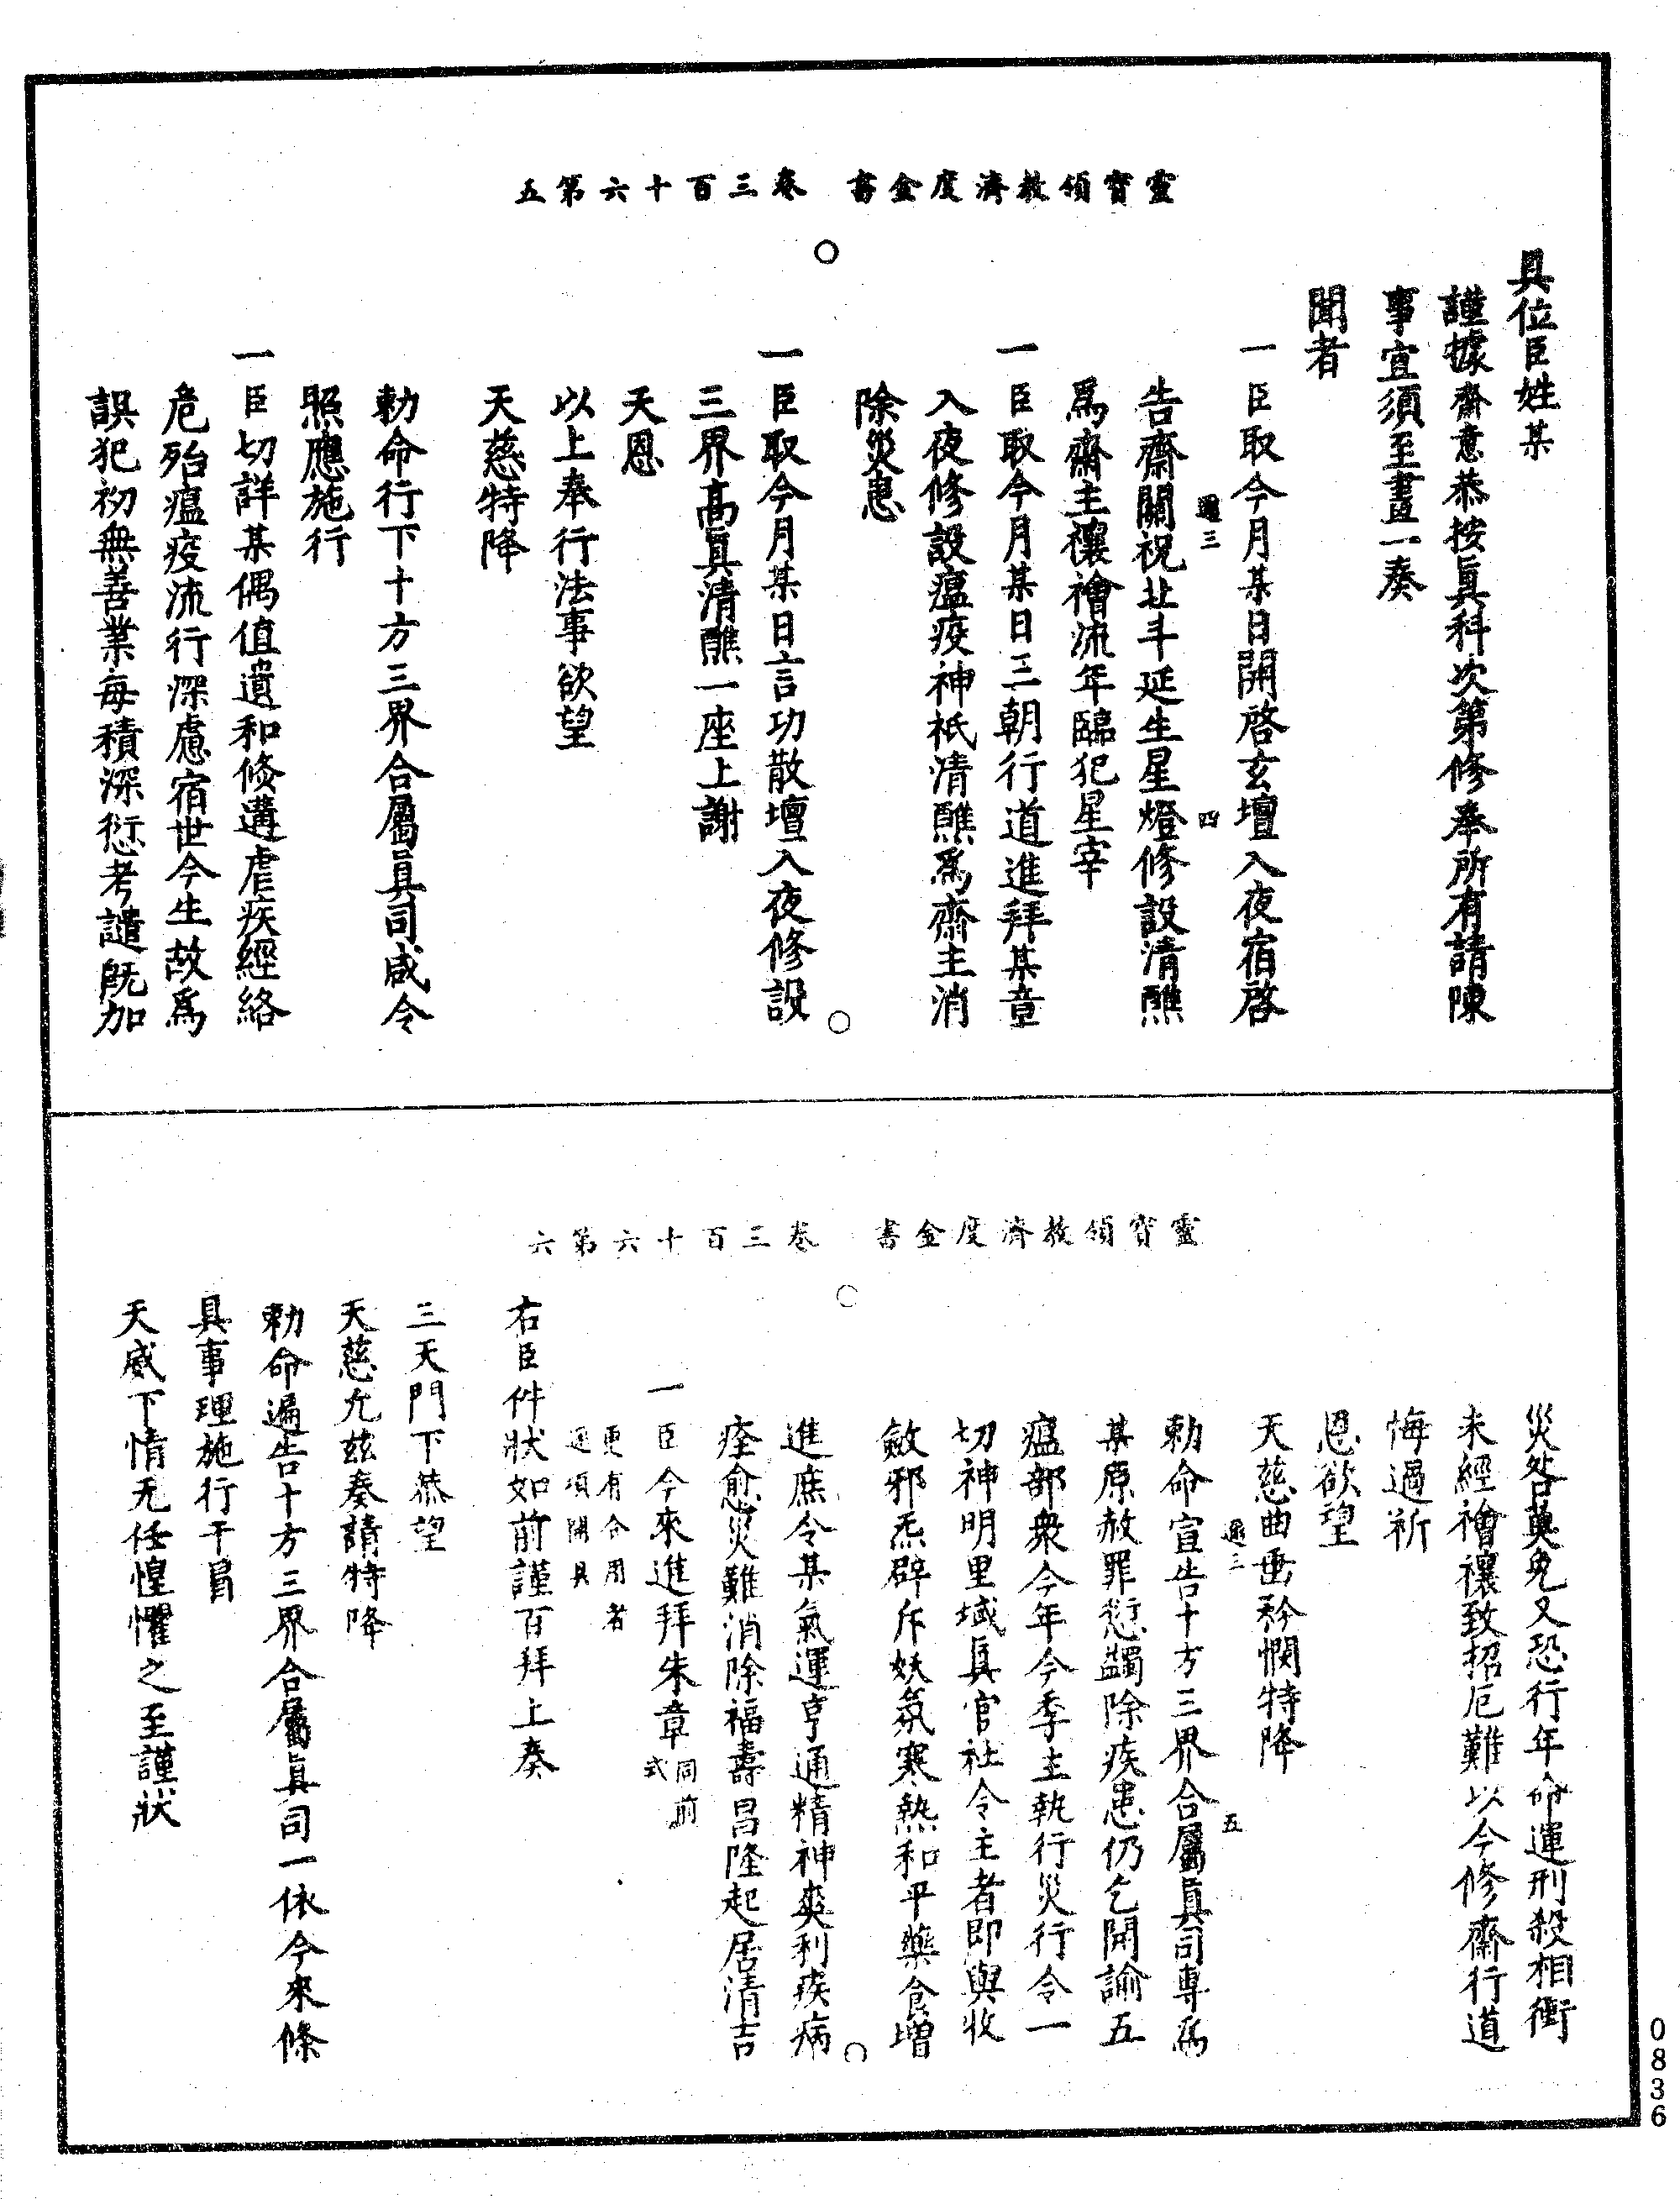 靈寶領教濟度金書　卷三百十六第五
具位臣姓某
謹據齋意恭按眞科次第修奉所有請陳
事宜須至畫一奏
聞者
一臣取今月某日開啓玄壇入夜宿啓
通三　四
告齋關祝北斗延生星燈修設清醮
爲齋主禳禬流年臨犯星宰
一臣取今月某日三朝行道進拜某章
入夜修設瘟疫神祇清醮爲齋主消
除災患
一臣取今月某日言功散壇入夜修設
三界高眞清醮一座上謝
天恩
以上奉行法事欲望
天慈特降
勅命行下十方三界合屬眞司咸令
照應施行
一臣切詳某偶值遺和倏遘虐疾經絡
危殆瘟疫流行深慮宿世今生故爲
誤犯初無善業每積深愆考譴旣加
靈寶領教濟度金書　卷三百十六第六
災咎莫免又恐行年命運刑殺相衝
未經禬禳致招厄難以今修齋行道
悔過祈
恩欲望
天慈曲垂矜憫特降
通三　五
勅命宣告十方三界合屬眞司專爲
某原赦罪愆蠲除疾患仍乞開諭五
瘟部衆今年今季主執行災行令一
切神明里域眞官社令主者即與收
斂邪炁辟斥妖氛寒熱和平藥食增
進庶令某氣運亨通精神爽利疾病
痊愈災難消除福壽昌隆起居清吉
一臣今來進拜朱章同前式
更有合用者逐項開具
右臣件狀如前謹百拜上奏
三天門下恭望
天慈允茲奏請特降
勅命遍告十方三界合屬眞司一依今來條
具事理施行干冒
天威下情无任惶懼之至謹狀
0836